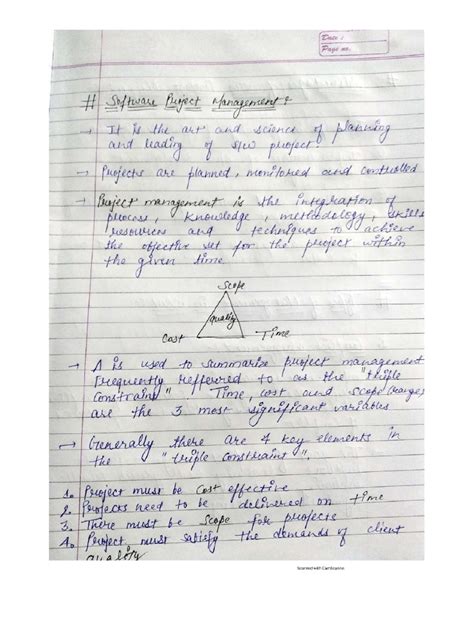 Date :
Page no.
# Software Project Management :
→ It is the art and science of planning
and leading of s/w project.
→ Projects are planned, monitored and controlled
→ Project management is the integration of
process, knowledge, methodology, skills
resources and techniques to achieve
the objective set for the project within
the given time.
Scope
quality
Cost Time
→ Δ is used to summarize project management
Frequently reffered to as the "triple
Constraint" Time, cost and scope changes
are the 3 most significant variables
→ Generally there are 4 key elements in
the "triple constraint".
1. Project must be cost effective
2. Projecks need to be delivered on time
3. There must be scope for projects
4. Project must satisfy the demands of client
quality
Scanned with CamScanner